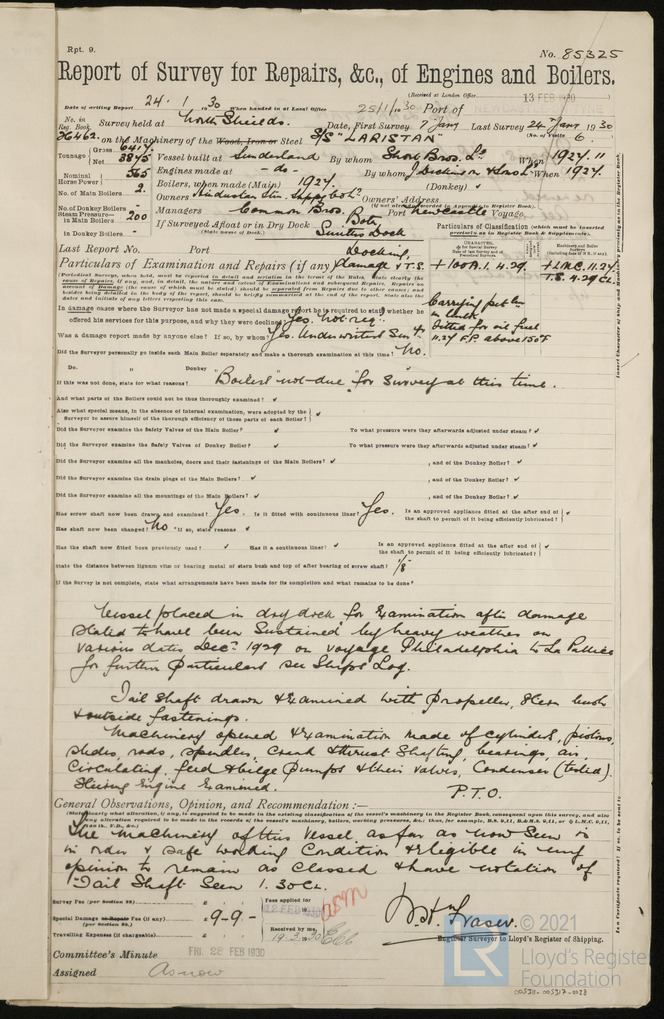 Rpt. 9.
No. 85325
Report of Survey for Repairs, &c., of Engines and Boilers.
(Received at London Office 13 FEB 1930
Date of writing Report 24. 1. 1930 When handed in at Local Office 25/1/1930 Port of
No. in Reg. Book. Survey held at North Shields. Date, First Survey 7 Jany Last Survey 24 Jany 1930
(No. of Visits 6.
36462. on the Machinery of the Wood, Iron or Steel S/S "LARISTAN"
Tonnage { Gross 6417. Net 3845 Vessel built at Sunderland By whom Short Bros. Ld When 1924. 11
Nominal Horse Power } 565 Engines made at -do- By whom J. Dickinson & Sons Ld When 1924.
No. of Main Boilers 2. Boilers, when made (Main) 1924. (Donkey) ✓
Owners Hindustan Stm Shipp Co Ld Owners' Address
(If not already recorded in Appendix to Register Book.)
No. of Donkey Boilers - Managers Common Bros. Port Newcastle Voyage,
Steam Pressure— in Main Boilers 200 If Surveyed Afloat or in Dry Dock Both
in Donkey Boilers - (State name of Dock.) Smiths Dock
Particulars of Classification (which must be inserted precisely as in Register Book & Supplements).
Last Report No. Port
Particulars of Examination and Repairs (if any) Docking, Damage & T.S.
+ 100A.1. 4.29. + LMC. 11.24. T.S. 4.29 CL.
Carrying petlm in bulk
fitted for oil fuel
11.24 F.P. above 150°F
In damage cases where the Surveyor has not made a special damage report he is required to state whether he
offered his services for this purpose, and why they were declined Yes. not req.
Was a damage report made by anyone else? If so, by whom? Yes. Underwriters Sur.
Did the Surveyor personally go inside each Main Boiler separately and make a thorough examination at this time? No.
Do. „ Donkey „
If this was not done, state for what reasons? Boilers "not due" for survey at this time.
And what parts of the Boilers could not be thoroughly examined? ✓
Also what special means, in the absence of internal examination, were adopted by the
Surveyor to assure himself of the thorough efficiency of those parts of each Boiler? ✓
Did the Surveyor examine the Safety Valves of the Main Boiler? ✓ To what pressure were they afterwards adjusted under steam? ✓
Did the Surveyor examine the Safety Valves of Donkey Boiler? ✓ To what pressure were they afterwards adjusted under steam? ✓
Did the Surveyor examine all the manholes, doors and their fastenings of the Main Boilers? ✓ , and of the Donkey Boiler? ✓
Did the Surveyor examine the drain plugs of the Main Boilers? ✓ , and of the Donkey Boiler? ✓
Did the Surveyor examine all the mountings of the Main Boilers? ✓ , and of the Donkey Boiler? ✓
Has screw shaft now been drawn and examined? Yes. Is it fitted with continuous liner? Yes. Is an approved appliance fitted at the after end of the shaft to permit of it being efficiently lubricated? ✓
Has shaft now been changed? No If so, state reasons ✓
Has the shaft now fitted been previously used? ✓ Has it a continuous liner? ✓ Is an approved appliance fitted at the after end of the shaft to permit of it being efficiently lubricated? ✓
State the distance between lignum vitæ or bearing metal of stern bush and top of after bearing of screw shaft? 1/8"
If the Survey is not complete, state what arrangements have been made for its completion and what remains to be done?
Vessel placed in dry dock for Examination after damage
stated to have been Sustained by heavy weather on
various dates Decr 1929 on voyage Philadelphia to La Pallice
for further Particulars see Ships Log.
Tail Shaft drawn & Examined with Propeller, Stern bush
& outside fastenings.
Machinery opened & Examination made of cylinders, pistons,
slides, rods, spindles, crank & thrust Shafting, bearings, air,
circulating, feed & bilge Pumps & their valves, Condenser (tested).
Steering Engine Examined. P.T.O.
General Observations, Opinion, and Recommendation:—
The machinery of this Vessel as far as now Seen is
in order & safe working Condition & Eligible in my
opinion to remain as classed & have notation of
Tail Shaft Seen 1.30 CL.
Survey Fee (per Section 29) £ : : Fees applied for
Special Damage or Repair Fee (if any) (per Section 29.) £ 9-9-
Travelling Expenses (if chargeable) £ : : Received by me, 19.3.1930
W.H. Fraser.
Engineer Surveyor to Lloyd's Register of Shipping.
Committee's Minute FRI. 28 FEB 1930
Assigned As now
© 2021
LR
Lloyd's Register
Foundation
005311-005317-0028